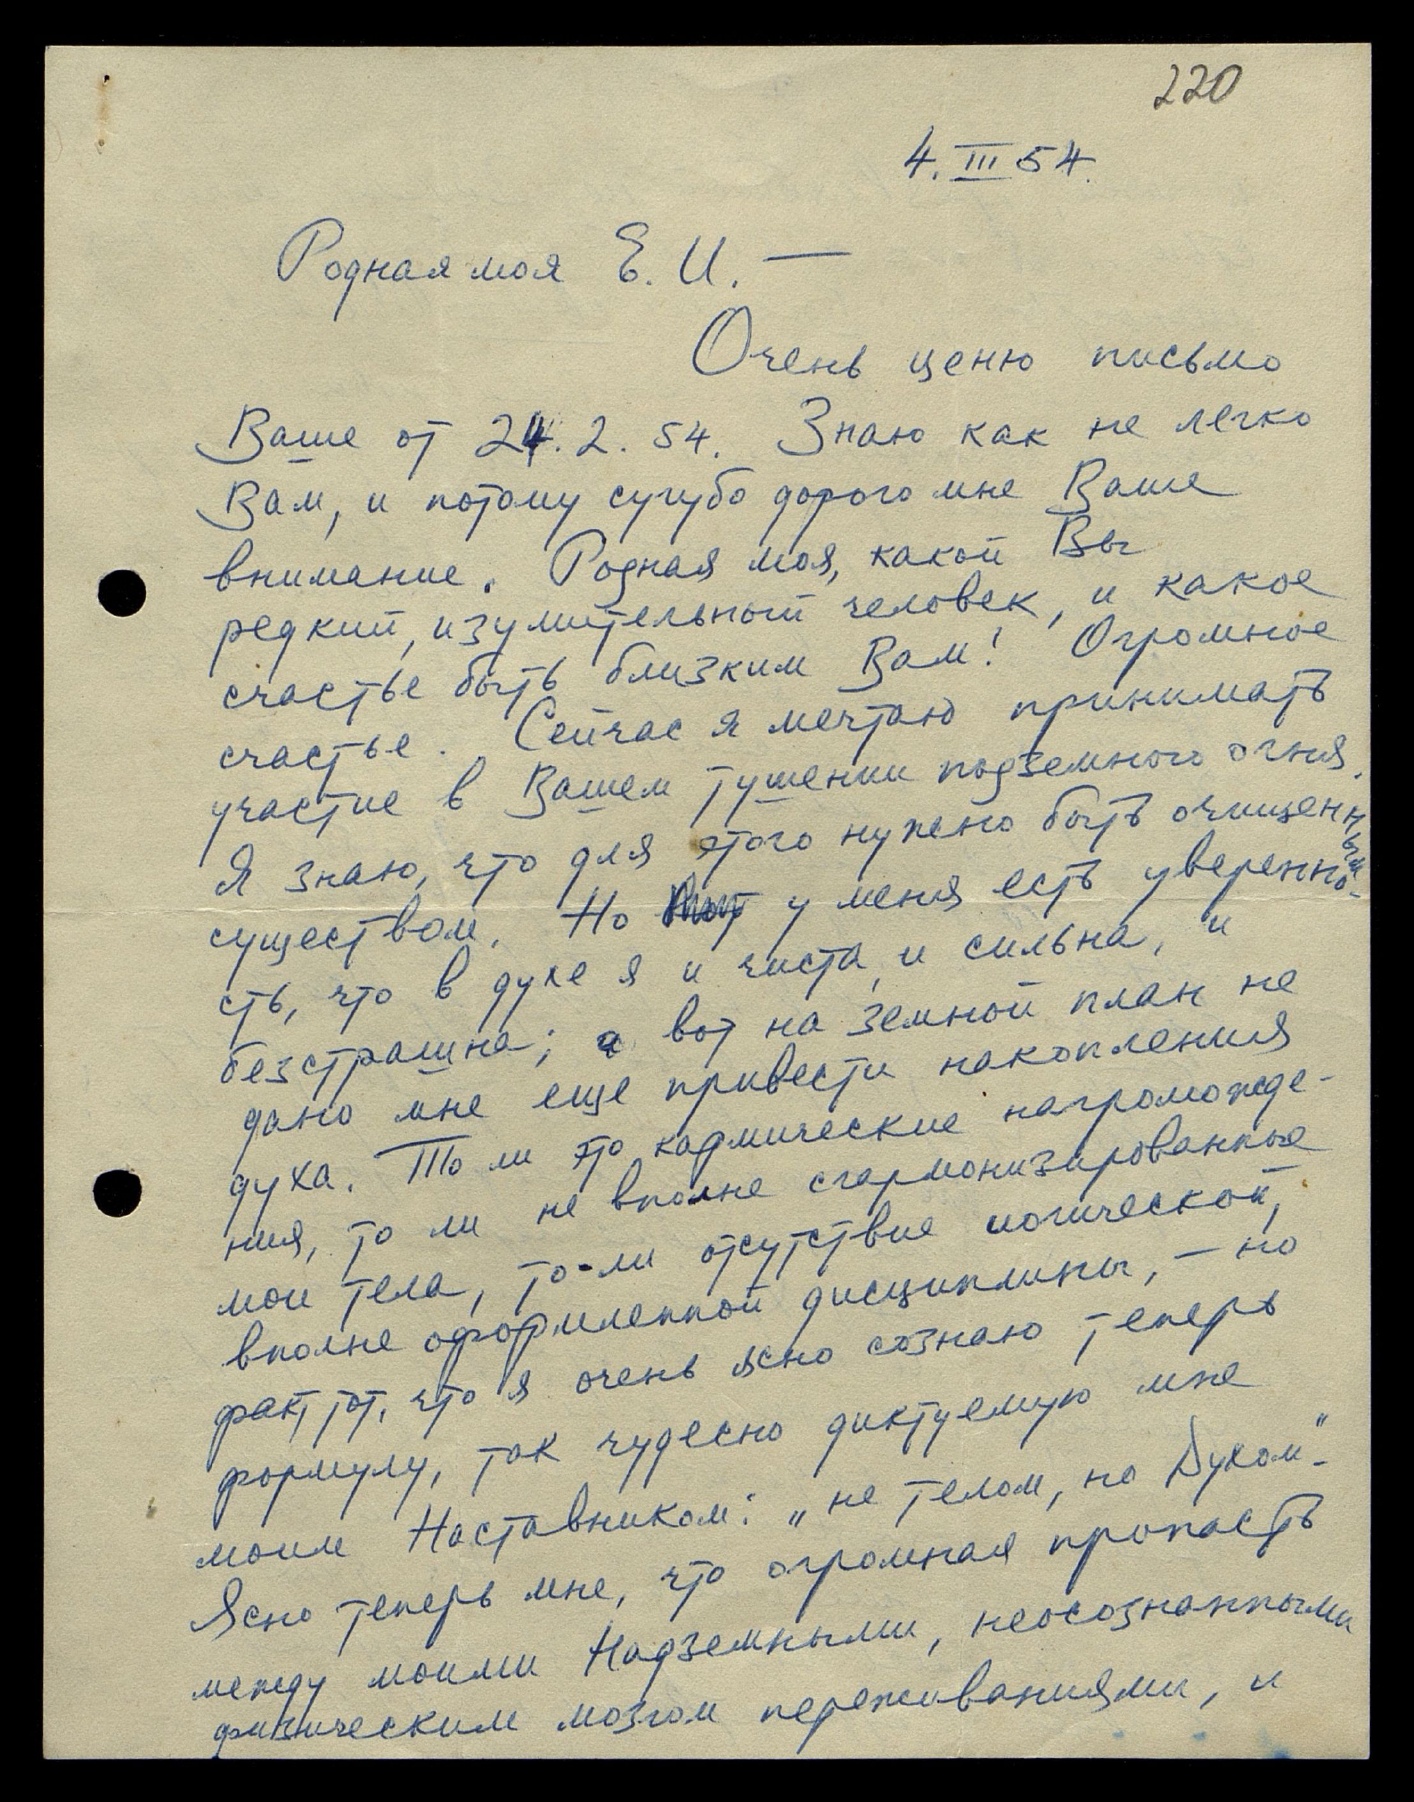 220
4. III 54.
Родная моя Е. И. —
Очень ценю письмо
Ваше от 24. 2. 54. Знаю как не легко
Вам, и потому сугубо дорого мне Ваше
внимание. Родная моя, какой Вы
редкий, изумительный человек, и какое
счастье быть близким Вам! Огромное
счастье. Сейчас я мечтаю принимать
участие в Вашем тушении подземного огня.
Я знаю, что для этого нужно быть очищенным
существом. Но у меня есть уверенно-
сть, что в духе я и чиста, и сильна, и
безстрашна; а вот на земной план не
дано мне еще привести накопления
духа. То ли это кармические нагроможде-
ния, то ли не вполне сгармонизированные
мои тела, то-ли отсутствие иогической,
вполне оформленной дисциплины, — но
факт тот, что я очень ясно сознаю теперь
формулу, так чудесно диктуемую мне
моим Наставником: „не телом, но Духом".
Ясно теперь мне, что огромная пропасть
между моими Надземными, неосознанными
физическим мозгом переживаниями, и